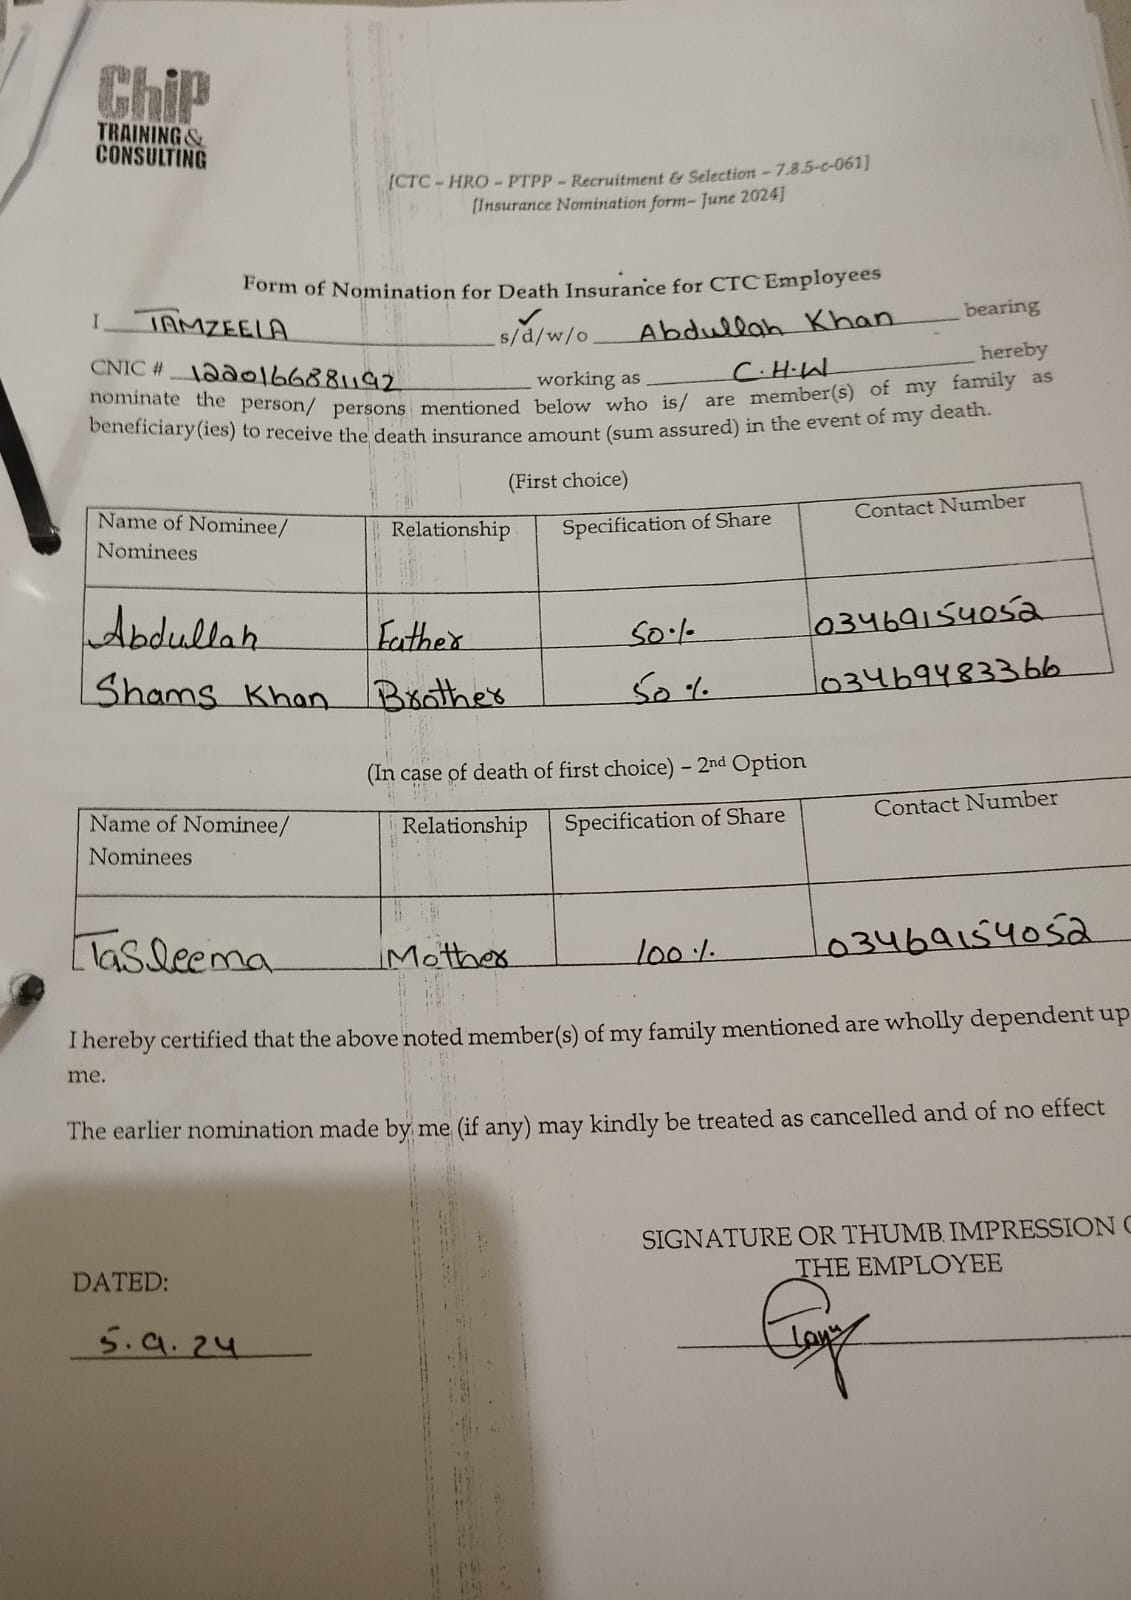 Chip
TRAINING &
CONSULTING
[CTC – HRO – PTPP – Recruitment & Selection – 7.8.5-c-061]
[Insurance Nomination form– June 2024]
Form of Nomination for Death Insurance for CTC Employees
I TAMZEELA s/d/w/o Abdullah Khan bearing
CNIC # 1220166881192 working as C.H.W hereby
nominate the person/ persons mentioned below who is/ are member(s) of my family as
beneficiary(ies) to receive the death insurance amount (sum assured) in the event of my death.
(First choice)
Name of Nominee/ Relationship Specification of Share Contact Number
Nominees
Abdullah Father 50% 03469154052
Shams Khan Brother 50% 03469483366
(In case of death of first choice) – 2nd Option
Name of Nominee/ Relationship Specification of Share Contact Number
Nominees
Tasleema Mother 100% 03469154052
I hereby certified that the above noted member(s) of my family mentioned are wholly dependent up
me.
The earlier nomination made by me (if any) may kindly be treated as cancelled and of no effect
SIGNATURE OR THUMB IMPRESSION
THE EMPLOYEE
DATED:
5.9.24